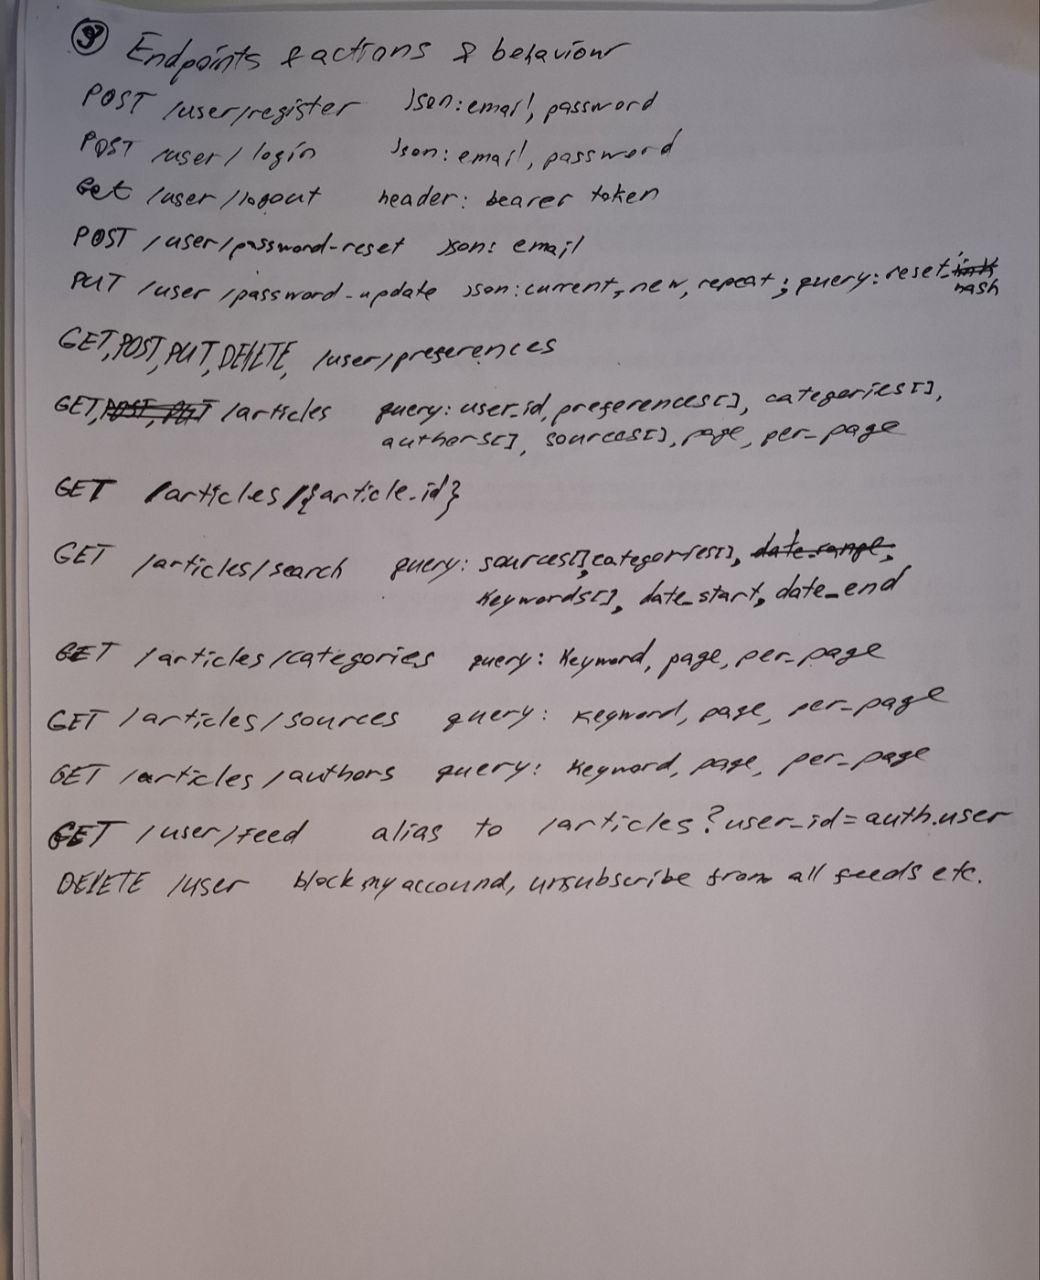 9 Endpoints & actions & behaviour
POST /user/register json: email, password
POST /user/login json: email, password
Get /user/logout header: bearer token
POST /user/password-reset json: email
PUT /user/password-update json: current, new, repeat; query: reset_hash
GET, POST, PUT, DELETE, /user/preferences
GET, POST, PUT /articles query: user_id, preferences[], categories[],
authors[], sources[], page, per_page
GET /articles/{article_id}
GET /articles/search query: sources[], categories[], date_range,
keywords[], date_start, date_end
GET /articles/categories query: keyword, page, per_page
GET /articles/sources query: keyword, page, per_page
GET /articles/authors query: keyword, page, per_page
GET /user/feed alias to /articles?user_id=auth.user
DELETE /user block my accound, unsubscribe from all feeds etc.